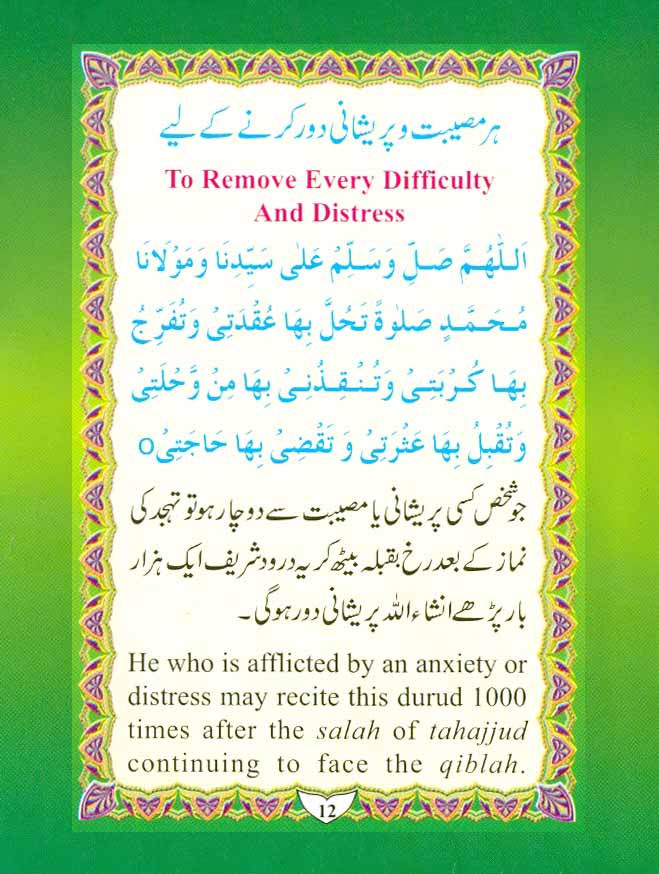 ہر مصیبت و پریشانی دور کرنے کے لیے
To Remove Every Difficulty
And Distress
اَللّٰهُمَّ صَلِّ وَسَلِّمْ عَلٰى سَيِّدِنَا وَمَوْلَانَا
مُحَمَّدٍ صَلٰوةً تَحُلَّ بِهَا عُقْدَتِىْ وَتُفَرِّجُ
بِهَا كُرْبَتِىْ وَتُنْقِذُنِىْ بِهَا مِنْ وَّحْلَتِىْ
وَتُقْبِلُ بِهَا عَثْرَتِىْ وَ تَقْضِىْ بِهَا حَاجَتِىْ o
جو شخص کسی پریشانی یا مصیبت سے دوچار ہو تو تہجد کی
نماز کے بعد رخ بقبلہ بیٹھ کر یہ درود شریف ایک ہزار
بار پڑھے انشاء اللہ پریشانی دور ہو گی۔
He who is afflicted by an anxiety or
distress may recite this durud 1000
times after the salah of tahajjud
continuing to face the qiblah.
12